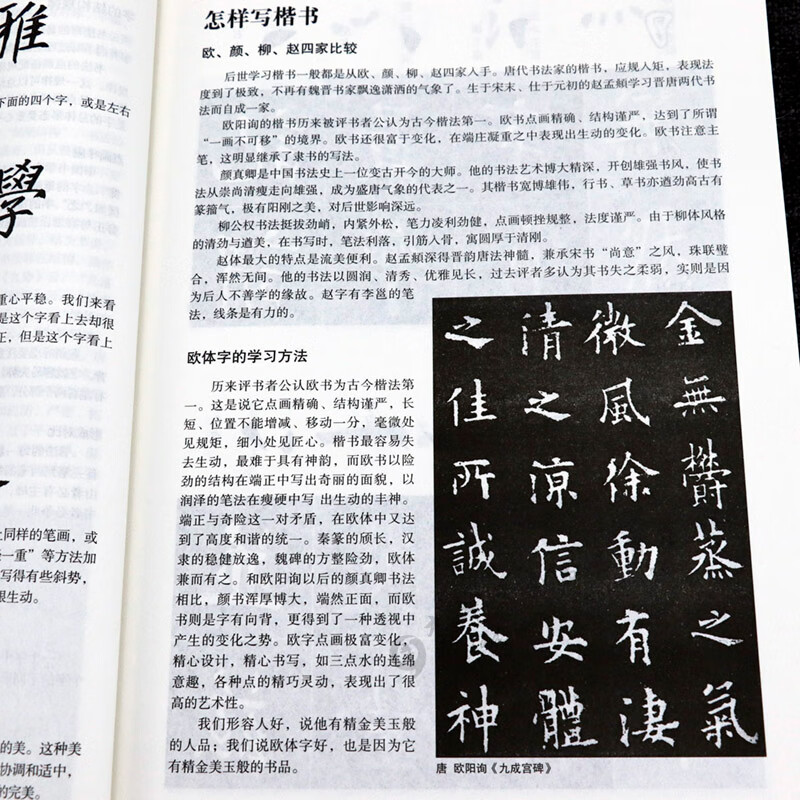 雅
下面的四个字，或是左右
學
重心平稳。我们来看
是这个字看上去却很
正，但是这个字看上
上同样的笔画，或
一重”等方法加
写得有些斜势，
很生动。
的美。这种美
协调和适中，
的完美。
怎样写楷书
欧、颜、柳、赵四家比较
后世学习楷书一般都是从欧、颜、柳、赵四家入手。唐代书法家的楷书，应规人矩，表现法
度到了极致，不再有魏晋书家飘逸潇洒的气象了。生于宋末、仕于元初的赵孟頫学习晋唐两代书
法而自成一家。
欧阳询的楷书历来被评书者公认为古今楷法第一。欧书点画精确、结构谨严，达到了所谓
“一画不可移”的境界。欧书还很富于变化，在端庄凝重之中表现出生动的变化。欧书注意主
笔，这明显继承了隶书的写法。
颜真卿是中国书法史上一位变古开今的大师。他的书法艺术博大精深，开创雄强书风，使书
法从崇尚清瘦走向雄强，成为盛唐气象的代表之一。其楷书宽博雄伟，行书、草书亦遒劲高古有
篆籀气，极有阳刚之美，对后世影响深远。
柳公权书法挺拔劲峭，内紧外松，笔力凌利劲健，点画顿挫规整，法度谨严。由于柳体风格
的清劲与遒美，在书写时，笔法利落，引筋入骨，寓圆厚于清刚。
赵体最大的特点是流美便利。赵孟頫深得晋韵唐法神髓，兼承宋书“尚意”之风，珠联璧
合，浑然无间。他的书法以圆润、清秀、优雅见长，过去评者多认为其书失之柔弱，实则是因
为后人不善学的缘故。赵字有李邕的笔
法，线条是有力的。
欧体字的学习方法
历来评书者公认欧书为古今楷法第
一。这是说它点画精确、结构谨严，长
短、位置不能增减、移动一分，毫微处
见规矩，细小处见匠心。楷书最容易失
去生动，最难于具有神韵，而欧书以险
劲的结构在端正中写出奇丽的面貌，以
润泽的笔法在瘦硬中写 出生动的丰神。
端正与奇险这一对矛盾，在欧体中又达
到了高度和谐的统一。秦篆的颀长，汉
隶的稳健放逸，魏碑的方整险劲，欧体
兼而有之。和欧阳询以后的颜真卿书法
相比，颜书浑厚博大，端然正面，而欧
书则是字有向背，更得到了一种透视中
产生的变化之势。欧字点画极富变化，
精心设计，精心书写，如三点水的连绵
意趣，各种点的精巧灵动，表现出了很
高的艺术性。
我们形容人好，说他有精金美玉般
的人品；我们说欧体字好，也是因为它
有精金美玉般的书品。
金無欝蒸之氣
微風徐動有淒
清之涼信安體
之佳所誠養神
唐 欧阳询《九成宫碑》